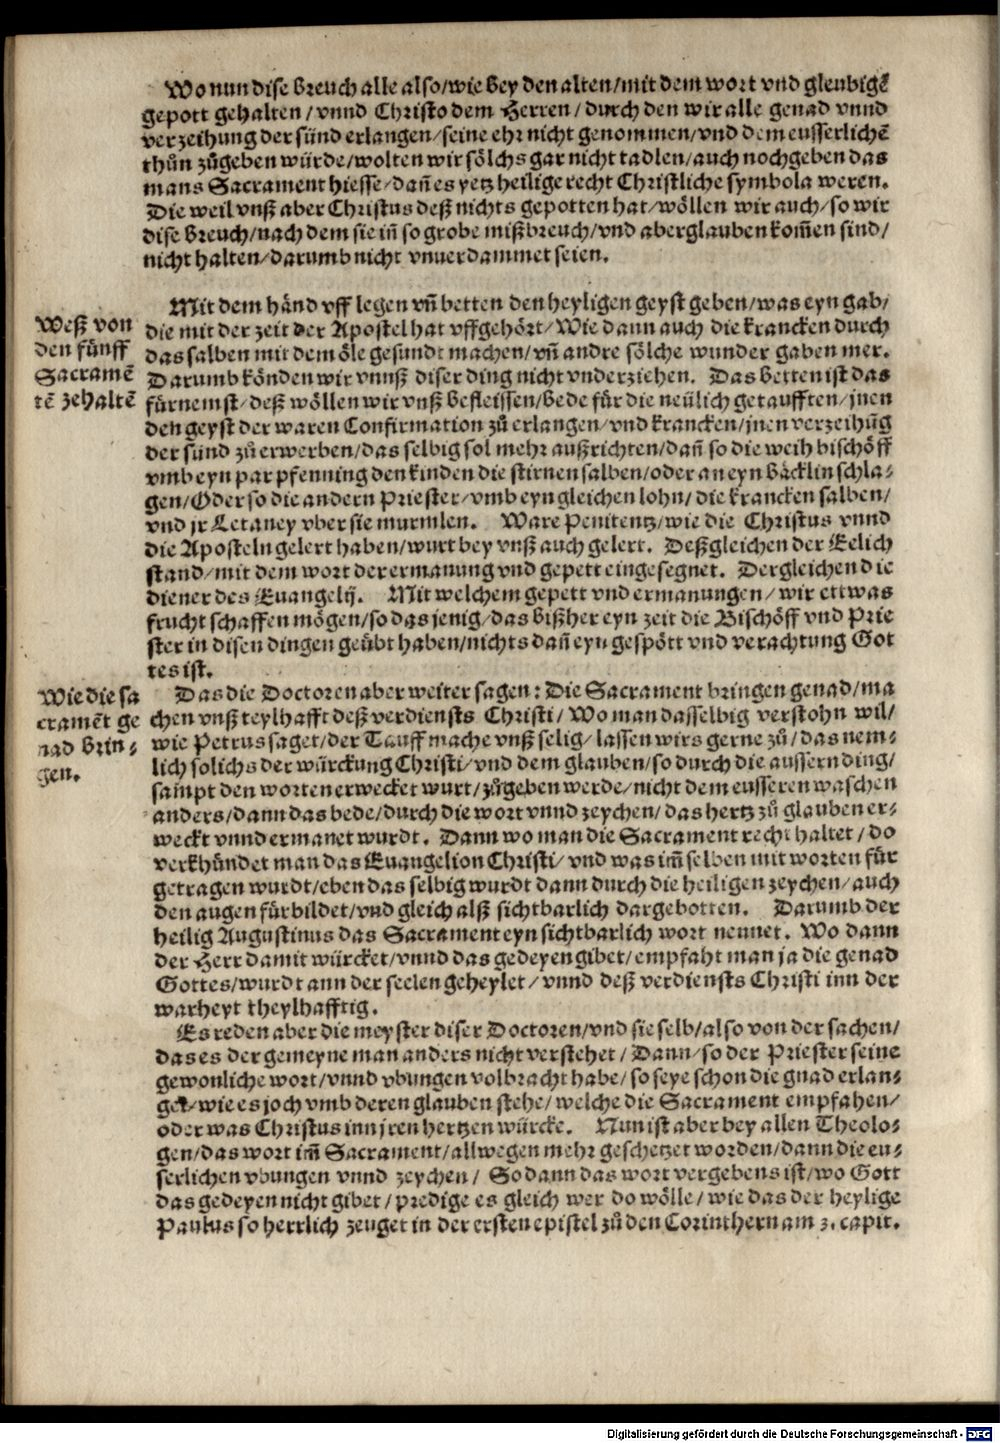 Wo nun dise breuch alle also/wie bey den alten/mit dem wort vnd gleubigẽ
gepott gehalten/vnnd Christo dem Herren/durch den wir alle genad vnnd
verzeihung der sünd erlangen/seine ehr nicht genommen/vnd dem eusserlichẽ
thůn zůgeben würde/wolten wir sölchs gar nicht tadlen/auch nochgeben das
mans Sacrament hiesse/dañ es yetz heilige recht Christliche symbola weren.
Die weil vnß aber Christus deß nichts gepotten hat/wöllen wir auch/so wir
dise breuch/nach dem sie iñ so grobe mißbreuch/vnd aberglauben kom̃en sind/
nicht halten/darumb nicht vnuerdammet seien.
Weß von
den fünff
Sacramẽ
tẽ zehaltẽ
Mit dem händ vff legen vñ betten den heyligen geyst geben/was eyn gab/
die mit der zeit der Apostel hat vffgehört/Wie dann auch die krancken durch
das salben mit dem öle gesundt machen/vñ andre sölche wunder gaben mer.
Darumb könden wir vnnß diser ding nicht vnderziehen. Das betten ist das
fürnemst/deß wöllen wir vnß befleissen/bede für die neülich getaufften/jnen
den geyst der waren Confirmation zů erlangen/vnd krancken/jnen verzeihũg
der sünd zů erwerben/das selbig sol mehr außrichten/dañ so die weih bischöff
vmb eyn par pfenning den kinden die stirnen salben/oder an eyn bäcklin schla⸗
gen/Oder so die andern Priester/vmb eyn gleichen lohn/die krancken salben/
vnd jr Letaney vber sie murmlen. Ware Penitentz/wie die Christus vnnd
die Aposteln gelert haben/wurt bey vnß auch gelert. Deßgleichen der Eelich
stand/mit dem wort der ermanung vnd gepett eingesegnet. Dergleichen die
diener des Euangelij. Mit welchem gepett vnd ermanungen/wir ettwas
frucht schaffen mögen/so das jenig/das bißher eyn zeit die Bischöff vnd Prie
ster in disen dingen geübt haben/nichts dañ eyn gespött vnd verachtung Got
tes ist.
Wie die sa
cramẽt ge
nad brin⸗
gen.
Das die Doctoren aber weiter sagen: Die Sacrament bringen genad/ma
chen vnß teylhafft deß verdiensts Christi/Wo man dasselbig verstohn wil/
wie Petrus saget/der Tauff mache vnß selig/lassen wirs gerne zů/das nem⸗
lich solichs der würckung Christi/vnd dem glauben/so durch die aussern ding/
sampt den worten erwecket wurt/zůgeben werde/nicht dem eusseren waschen
anders/dann das bede/durch die wort vnnd zeychen/das hertz zů glauben er⸗
weckt vnnd ermanet wurdt. Dann wo man die Sacrament recht haltet/do
verkhündet man das Euangelion Christi/vnd was im̃ selben mit worten für
getragen wurdt/eben das selbig wurdt dann durch die heiligen zeychen/auch
den augen fürbildet/vnd gleich alß sichtbarlich dargebotten. Darumb der
heilig Augustinus das Sacrament eyn sichtbarlich wort nennet. Wo dann
der Herr damit würcket/vnnd das gedeyen gibet/empfaht man ja die genad
Gottes/wurdt ann der seelen geheylet/vnnd deß verdiensts Christi inn der
warheyt theylhafftig.
Es reden aber die meyster diser Doctoren/vnd sie selb/also von der sachen/
das es der gemeyne man anders nicht verstehet/Dann/so der Priester seine
gewonliche wort/vnnd vbungen volbracht habe/so seye schon die gnad erlan⸗
get/wie es joch vmb deren glauben stehe/welche die Sacrament empfahen/
oder was Christus inn jren hertzen würcke. Nun ist aber bey allen Theolo⸗
gen/das wort im̃ Sacrament/allwegen mehr geschetzet worden/dann die eu⸗
serlichen vbungen vnnd zeychen/So dann das wort vergebens ist/wo Gott
das gedeyen nicht gibet/predige es gleich wer do wölle/wie das der heylige
Paulus so herrlich zeuget in der ersten epistel zů den Corinthern am 3. capit.
Digitalisierung gefördert durch die Deutsche Forschungsgemeinschaft - DFG